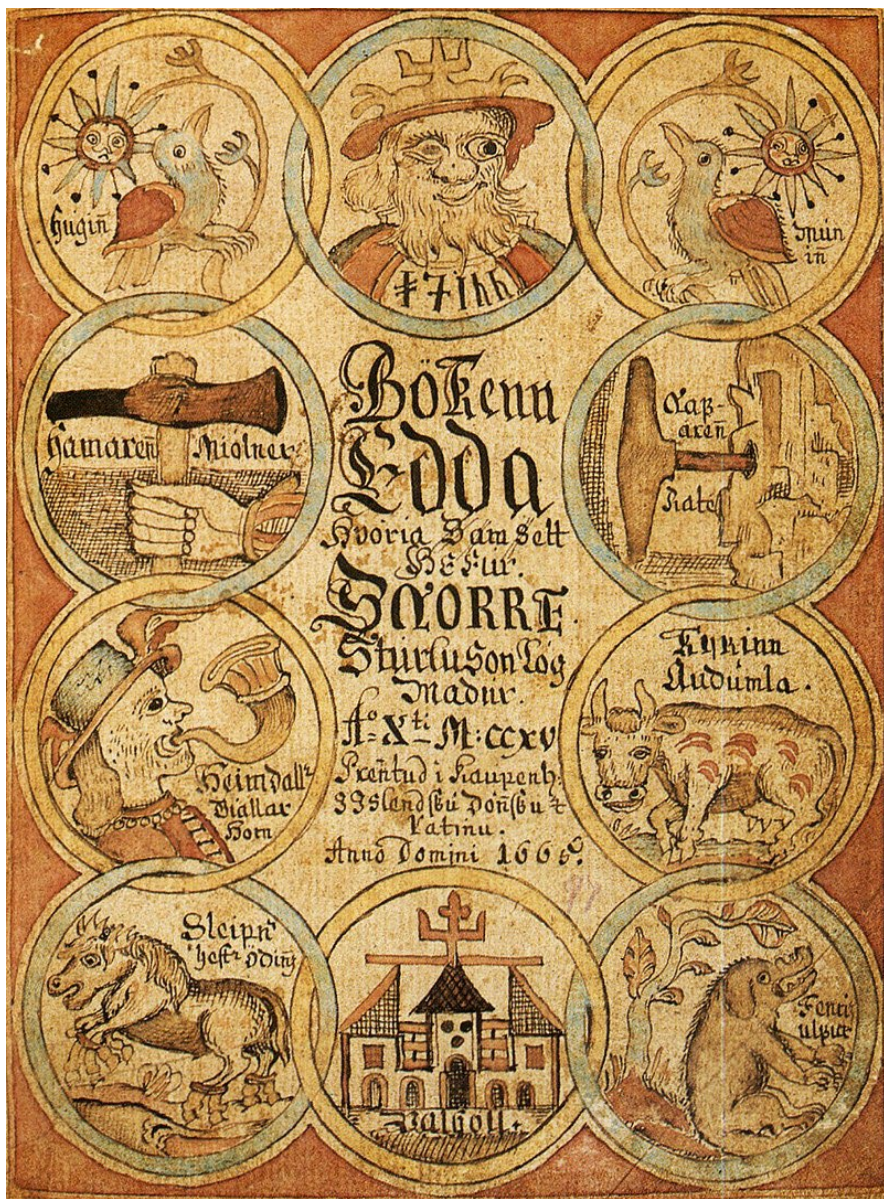 Hugin̄
Mún
in
Hamaren̄ Miolner
Rate
Bókenn
Edda
Hvöria Sam Sett
Hefur.
SNORRE
Sturluson Lög
Madur.
Aº Xti M:ccxv
Pren̄tud i Kaupenh:
Islendsku Dönsku &
Latinu.
Anno Domini 1665.
Heimdall
Giallar
Horn
Kyrinn
Audumla.
Sleipn
hest Oding
Valhöll.
Fenri
ulfur